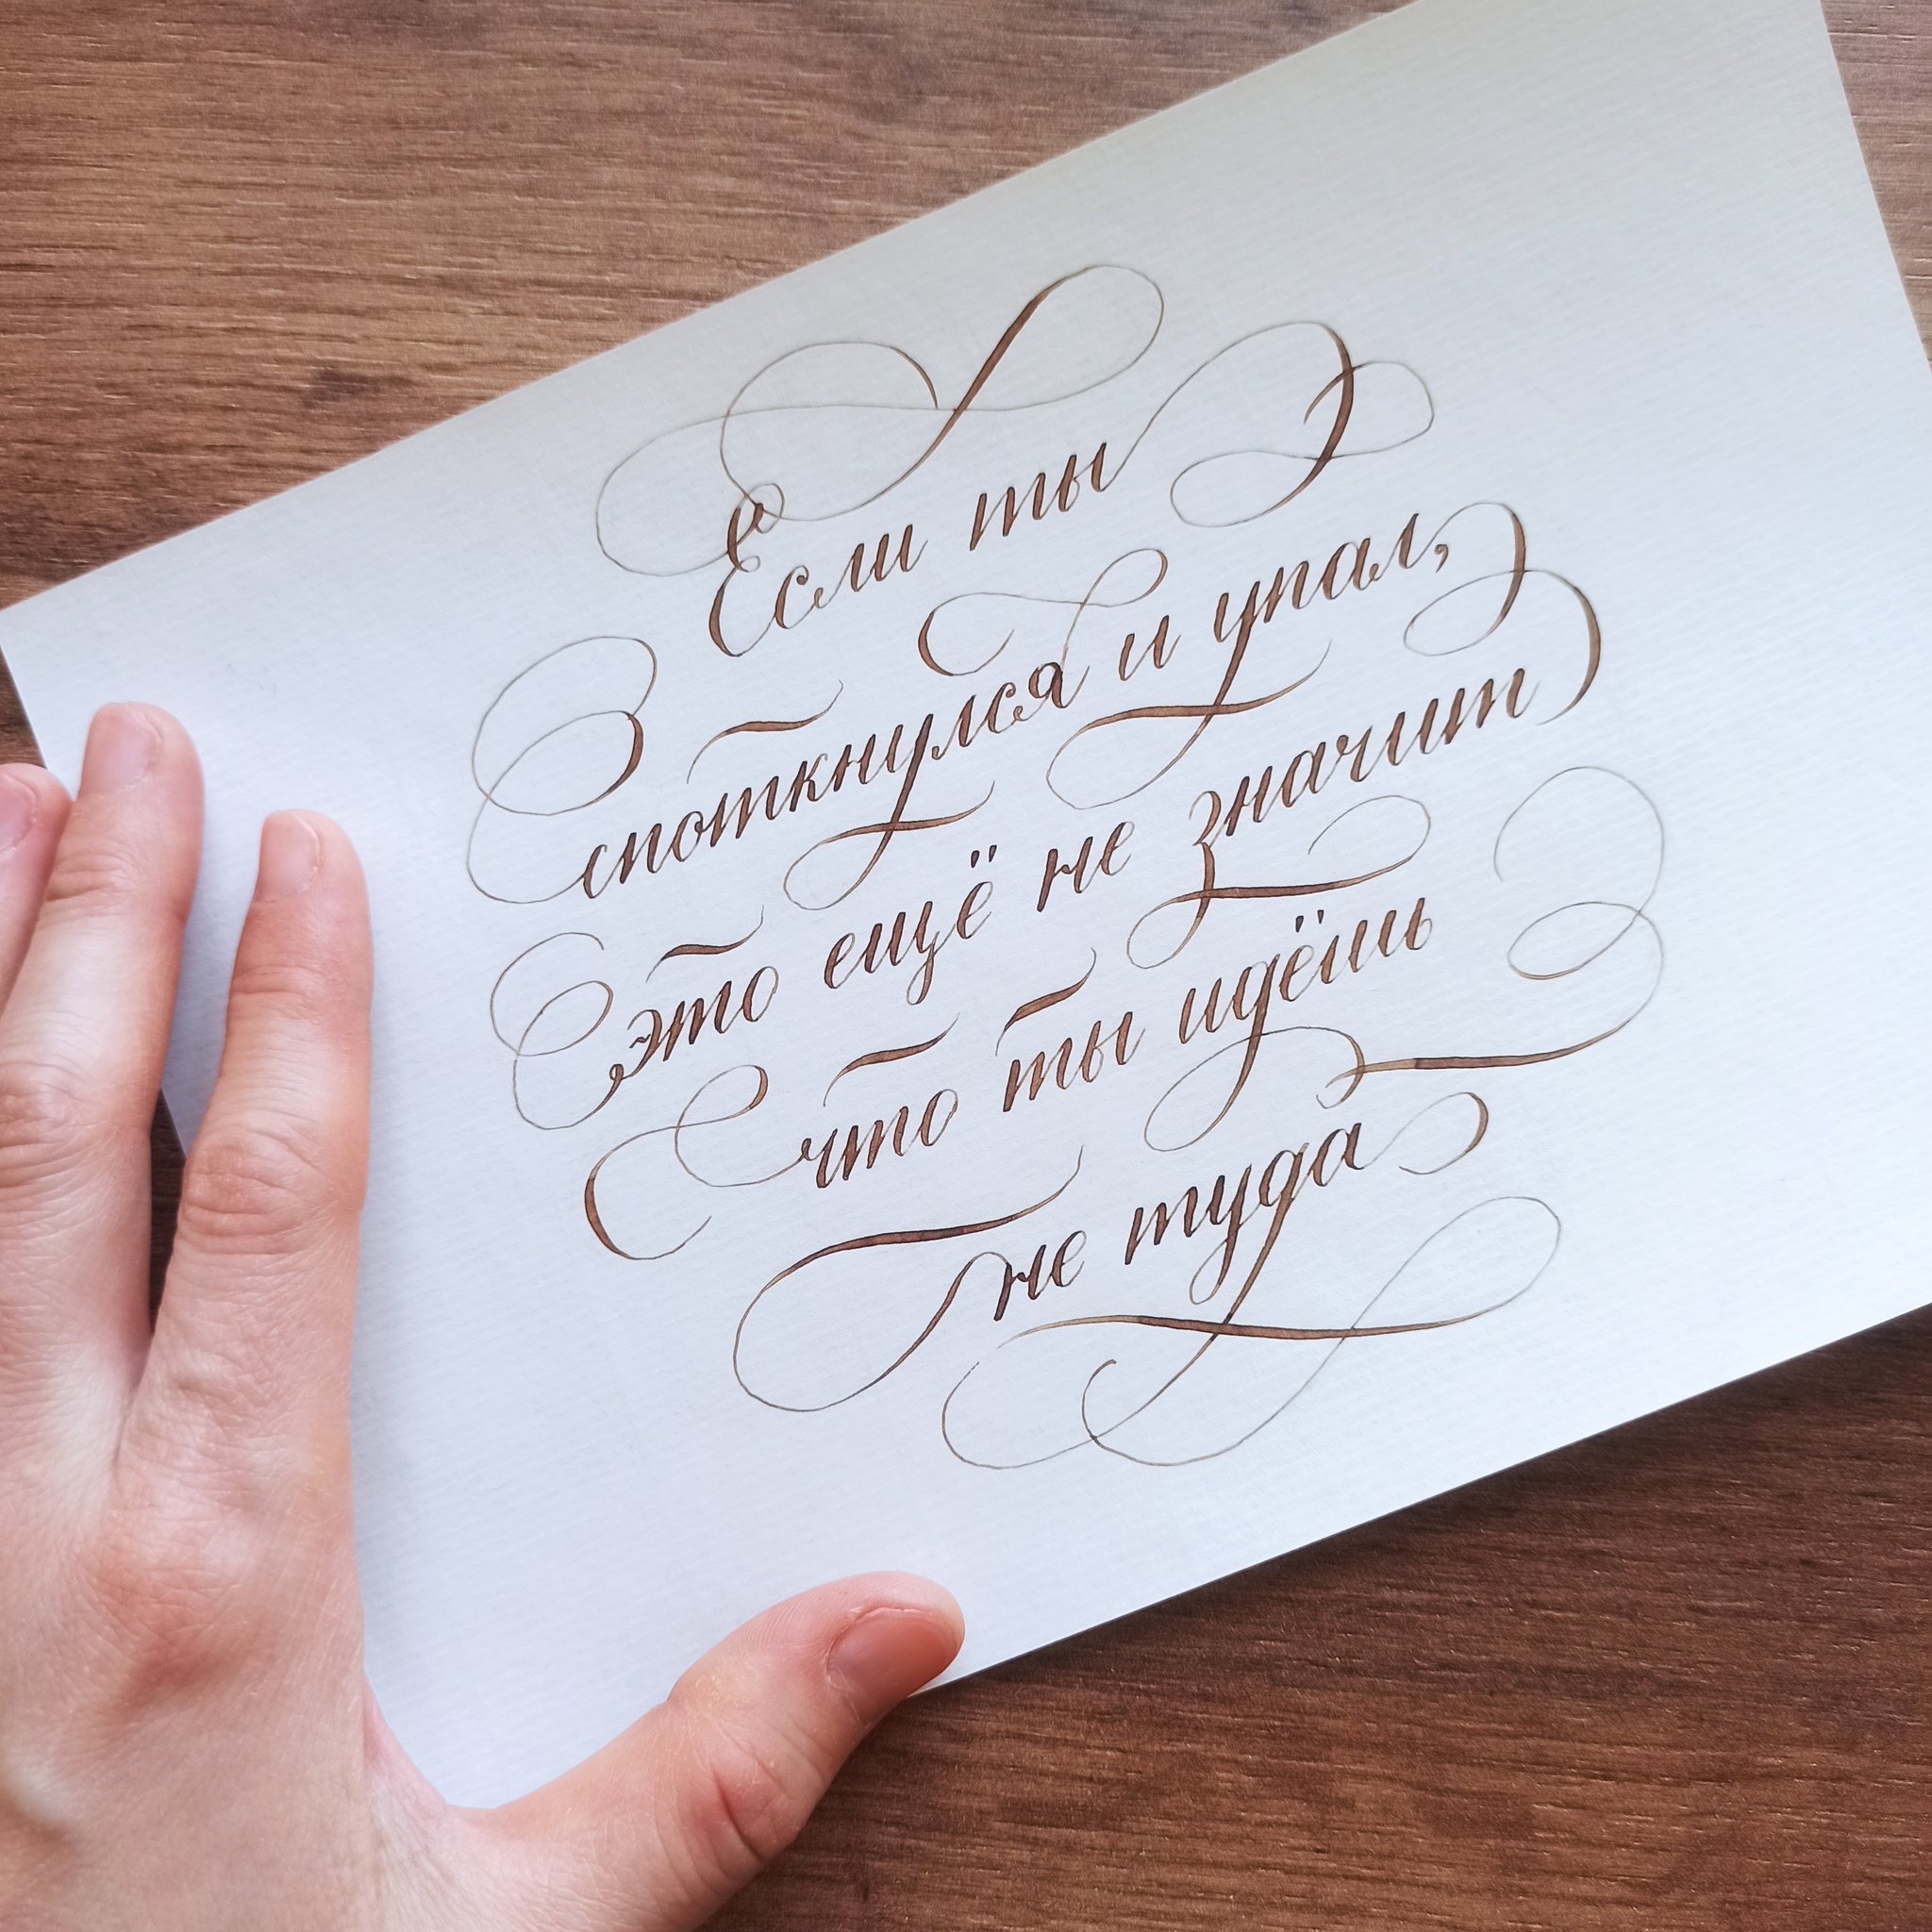 Если ты
споткнулся и упал,
это ещё не значит
что ты идёшь
не туда